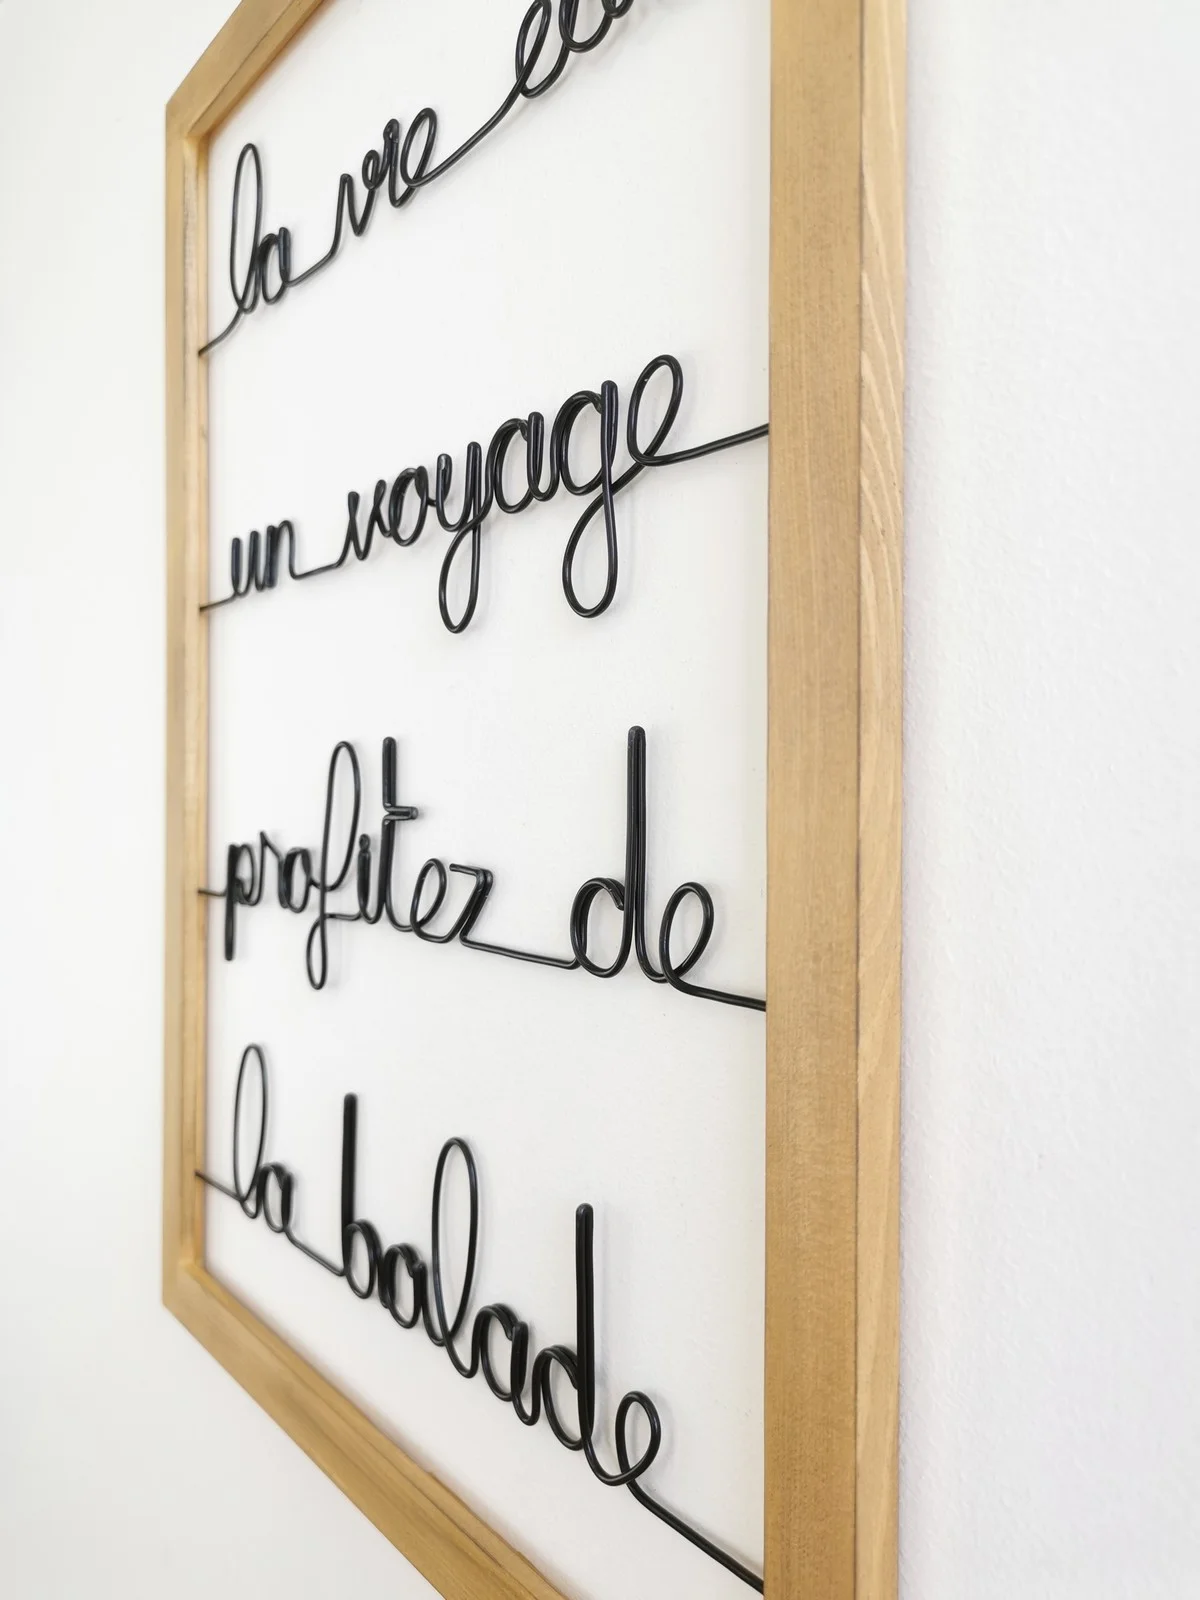 la vie
un voyage
profitez de
la balade